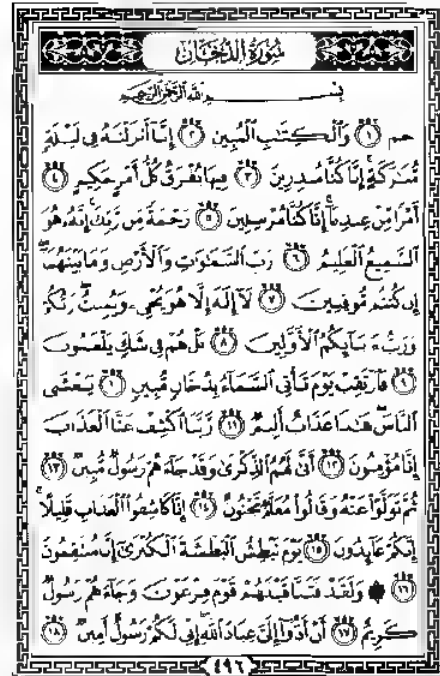 سُورَةُ الدُّخَانِ
بِسْمِ اللَّهِ الرَّحْمَٰنِ الرَّحِيمِ
حم ۝١ وَالْكِتَابِ الْمُبِينِ ۝٢ إِنَّا أَنزَلْنَاهُ فِي لَيْلَةٍ
مُّبَارَكَةٍ إِنَّا كُنَّا مُنذِرِينَ ۝٣ فِيهَا يُفْرَقُ كُلُّ أَمْرٍ حَكِيمٍ ۝٤
أَمْرًا مِّنْ عِندِنَا إِنَّا كُنَّا مُرْسِلِينَ ۝٥ رَحْمَةً مِّن رَّبِّكَ إِنَّهُ هُوَ
السَّمِيعُ الْعَلِيمُ ۝٦ رَبِّ السَّمَاوَاتِ وَالْأَرْضِ وَمَا بَيْنَهُمَا
إِن كُنتُم مُّوقِنِينَ ۝٧ لَا إِلَٰهَ إِلَّا هُوَ يُحْيِي وَيُمِيتُ رَبُّكُمْ
وَرَبُّ آبَائِكُمُ الْأَوَّلِينَ ۝٨ بَلْ هُمْ فِي شَكٍّ يَلْعَبُونَ
۝٩ فَارْتَقِبْ يَوْمَ تَأْتِي السَّمَاءُ بِدُخَانٍ مُّبِينٍ ۝١٠ يَغْشَى
النَّاسَ هَٰذَا عَذَابٌ أَلِيمٌ ۝١١ رَّبَّنَا اكْشِفْ عَنَّا الْعَذَابَ
إِنَّا مُؤْمِنُونَ ۝١٢ أَنَّىٰ لَهُمُ الذِّكْرَىٰ وَقَدْ جَاءَهُمْ رَسُولٌ مُّبِينٌ ۝١٣
ثُمَّ تَوَلَّوْا عَنْهُ وَقَالُوا مُعَلَّمٌ مَّجْنُونٌ ۝١٤ إِنَّا كَاشِفُو الْعَذَابِ قَلِيلًا
إِنَّكُمْ عَائِدُونَ ۝١٥ يَوْمَ نَبْطِشُ الْبَطْشَةَ الْكُبْرَىٰ إِنَّا مُنتَقِمُونَ
۝١٦ ۞ وَلَقَدْ فَتَنَّا قَبْلَهُمْ قَوْمَ فِرْعَوْنَ وَجَاءَهُمْ رَسُولٌ
كَرِيمٌ ۝١٧ أَنْ أَدُّوا إِلَيَّ عِبَادَ اللَّهِ إِنِّي لَكُمْ رَسُولٌ أَمِينٌ ۝١٨
٤٩٦